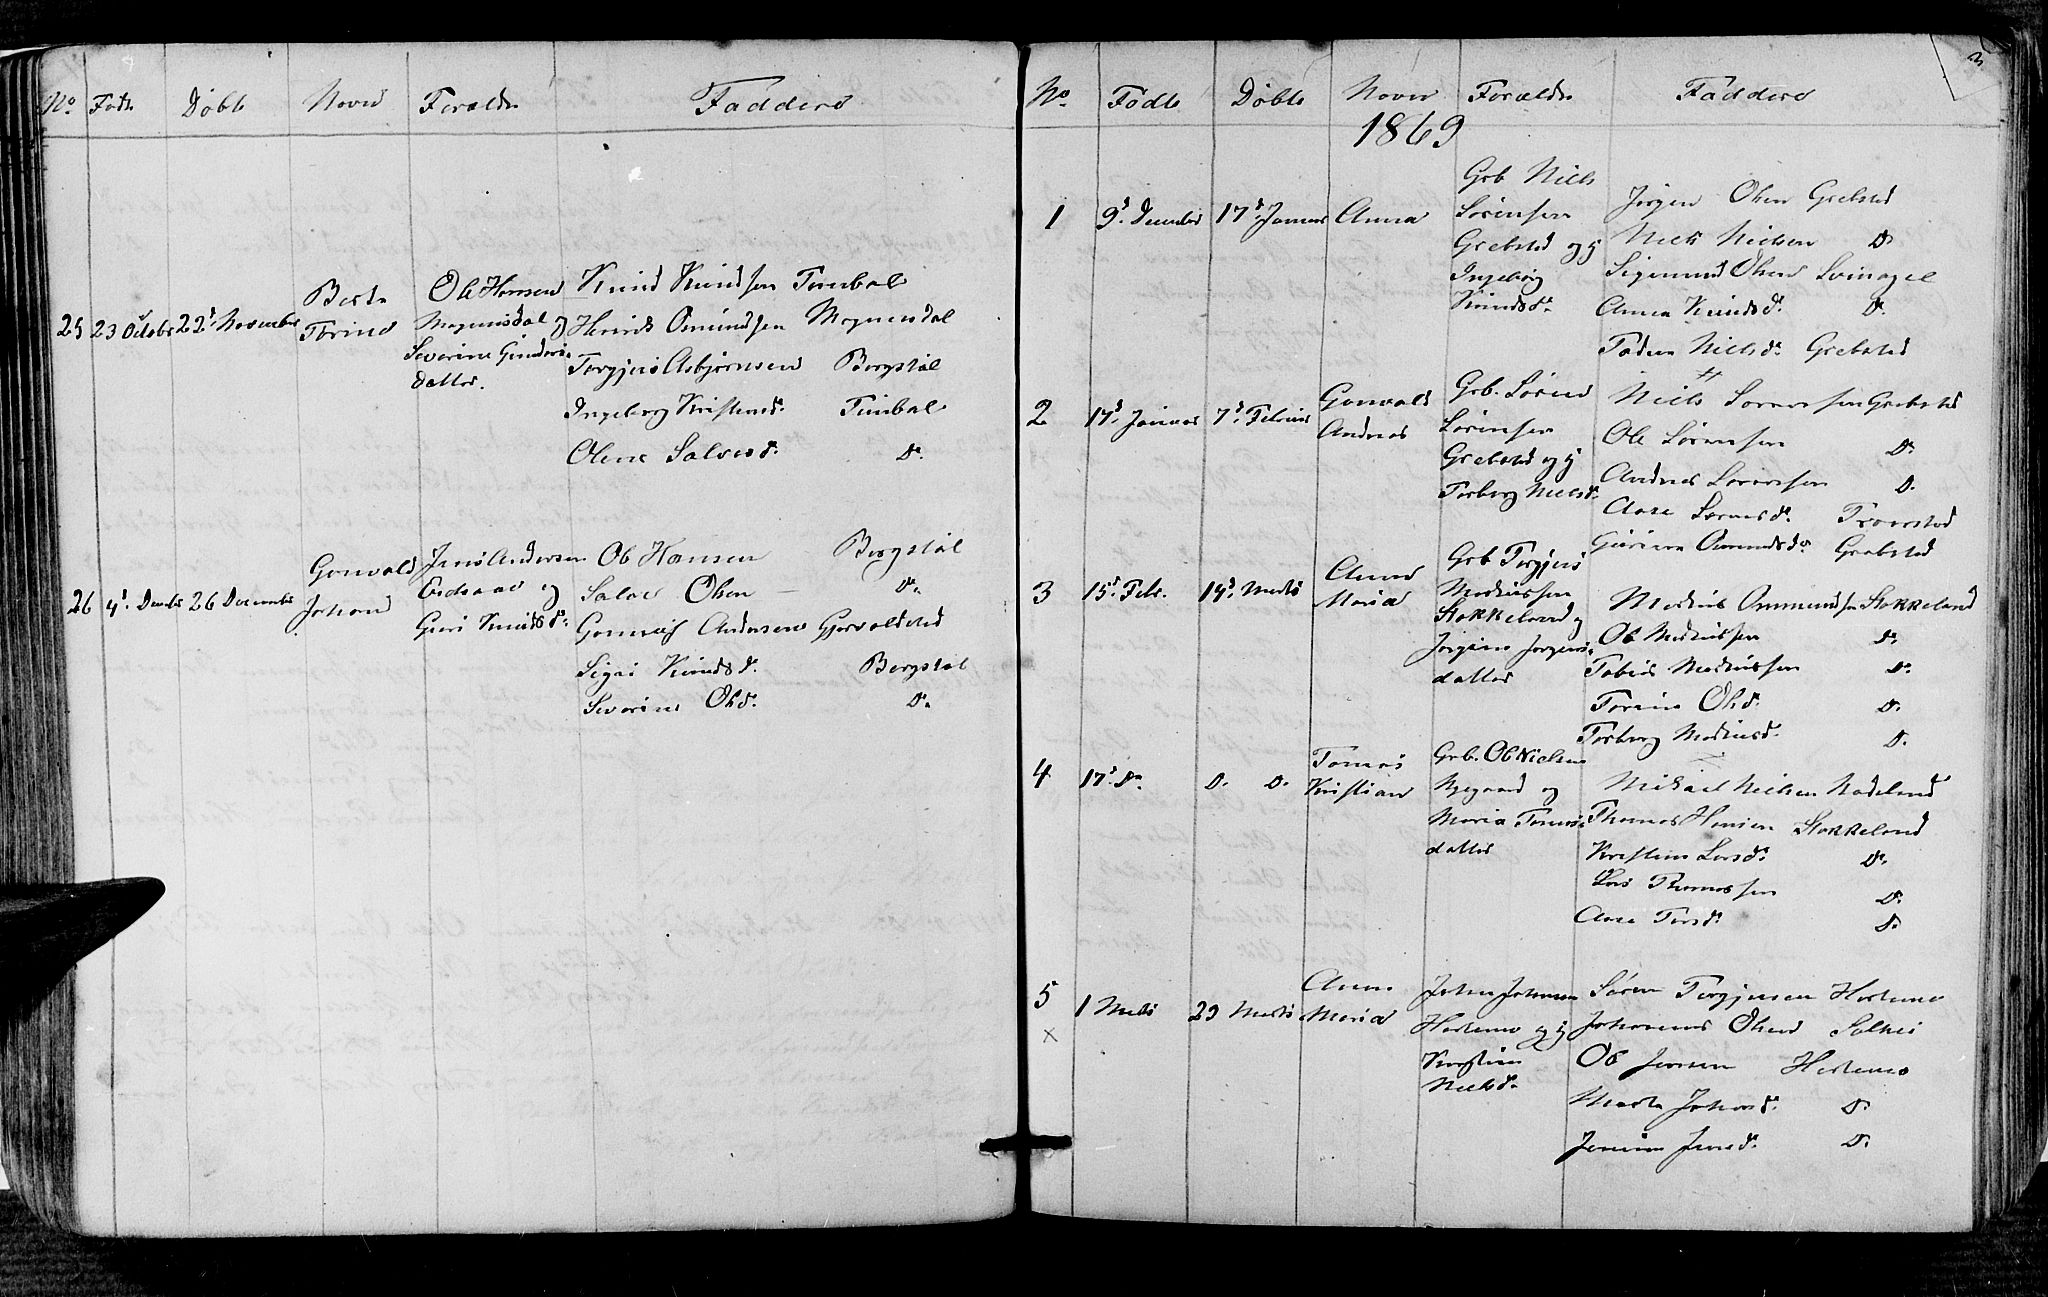 No Fødte Døbte Navn Foreldre Faddere
25 23 October 22d November
Berte
Torine
Ole Hansen
Magnusdal og
Severine Gunders
datter.
Knud Knudsen Tembal
Henrik Omundsen Magnusdal
Torgjus Asbjørnsen Bergstøl
Ingeborg Kristensd. Timbal
Olene Salvesd. Do.
26 4d Decbr 26 December
Gonvald
Johan
Jens Andersen
og
Guri Knudsdr
Ole Hansen Bergstøl
Salve Olsen Do.
Andersen Gjervoldstad
Sigri Knudsd. Bergstøl
Severine Olsd. Do.
3
No Fødte Døbte Navn Foreldre Faddere
1869
1 9d December 17d Januar Anna
Grb Niels
Sørensen
Grebsted og h
Ingeborg
Knudsdr
Jørgen Olsen Grebsted
Niels Nielsen Do
Sigmund Olsen Svinagel
Anna Knudsdr Do.
Todne Nielsdr Grebsted
2 17d Januar 7d Februar
Gonvald
Andreas
Grb. Søren
Sørensen
Grebsted og h
Torborg Nielsdr
Niels Sørensen Grebsted
Ole Sørensen Do.
Andreas Sørensen Do.
Aase Sørensdr
Omundsdr Grebsted
3 15d Febr. 14d Marts
Anne
Maria
Grb Torgjus
Markussen
Stokkeland og
Jørgine Jørgens
datter
Markus Ommundsen Stokkeland
Ole Markussen Do.
Tobias Markussen Do.
Torine Olsdr Do.
Torborg Markusdr Do.
4 17d Do. D. D.
Tomas
Kristian
Grb. Ole Nielsen
Nygaard og
Maria Tomas
datter
Mikael Nielsen
Thomas Hansen Stokkeland
Kristine Larsdr Do.
Lars Thomassen Do.
Aase Torsdr Do.
5 1 Marts 29 Marts
x
Anne
Maria
John Johnsen
Hortemo og h
Kirstine
Nielsdr
Søren Torgjusen Hortemo
Johannes Olsen
Ole Jensen Hortemo
Marte Johnsdr Do.
Jensine Jensdr Do.